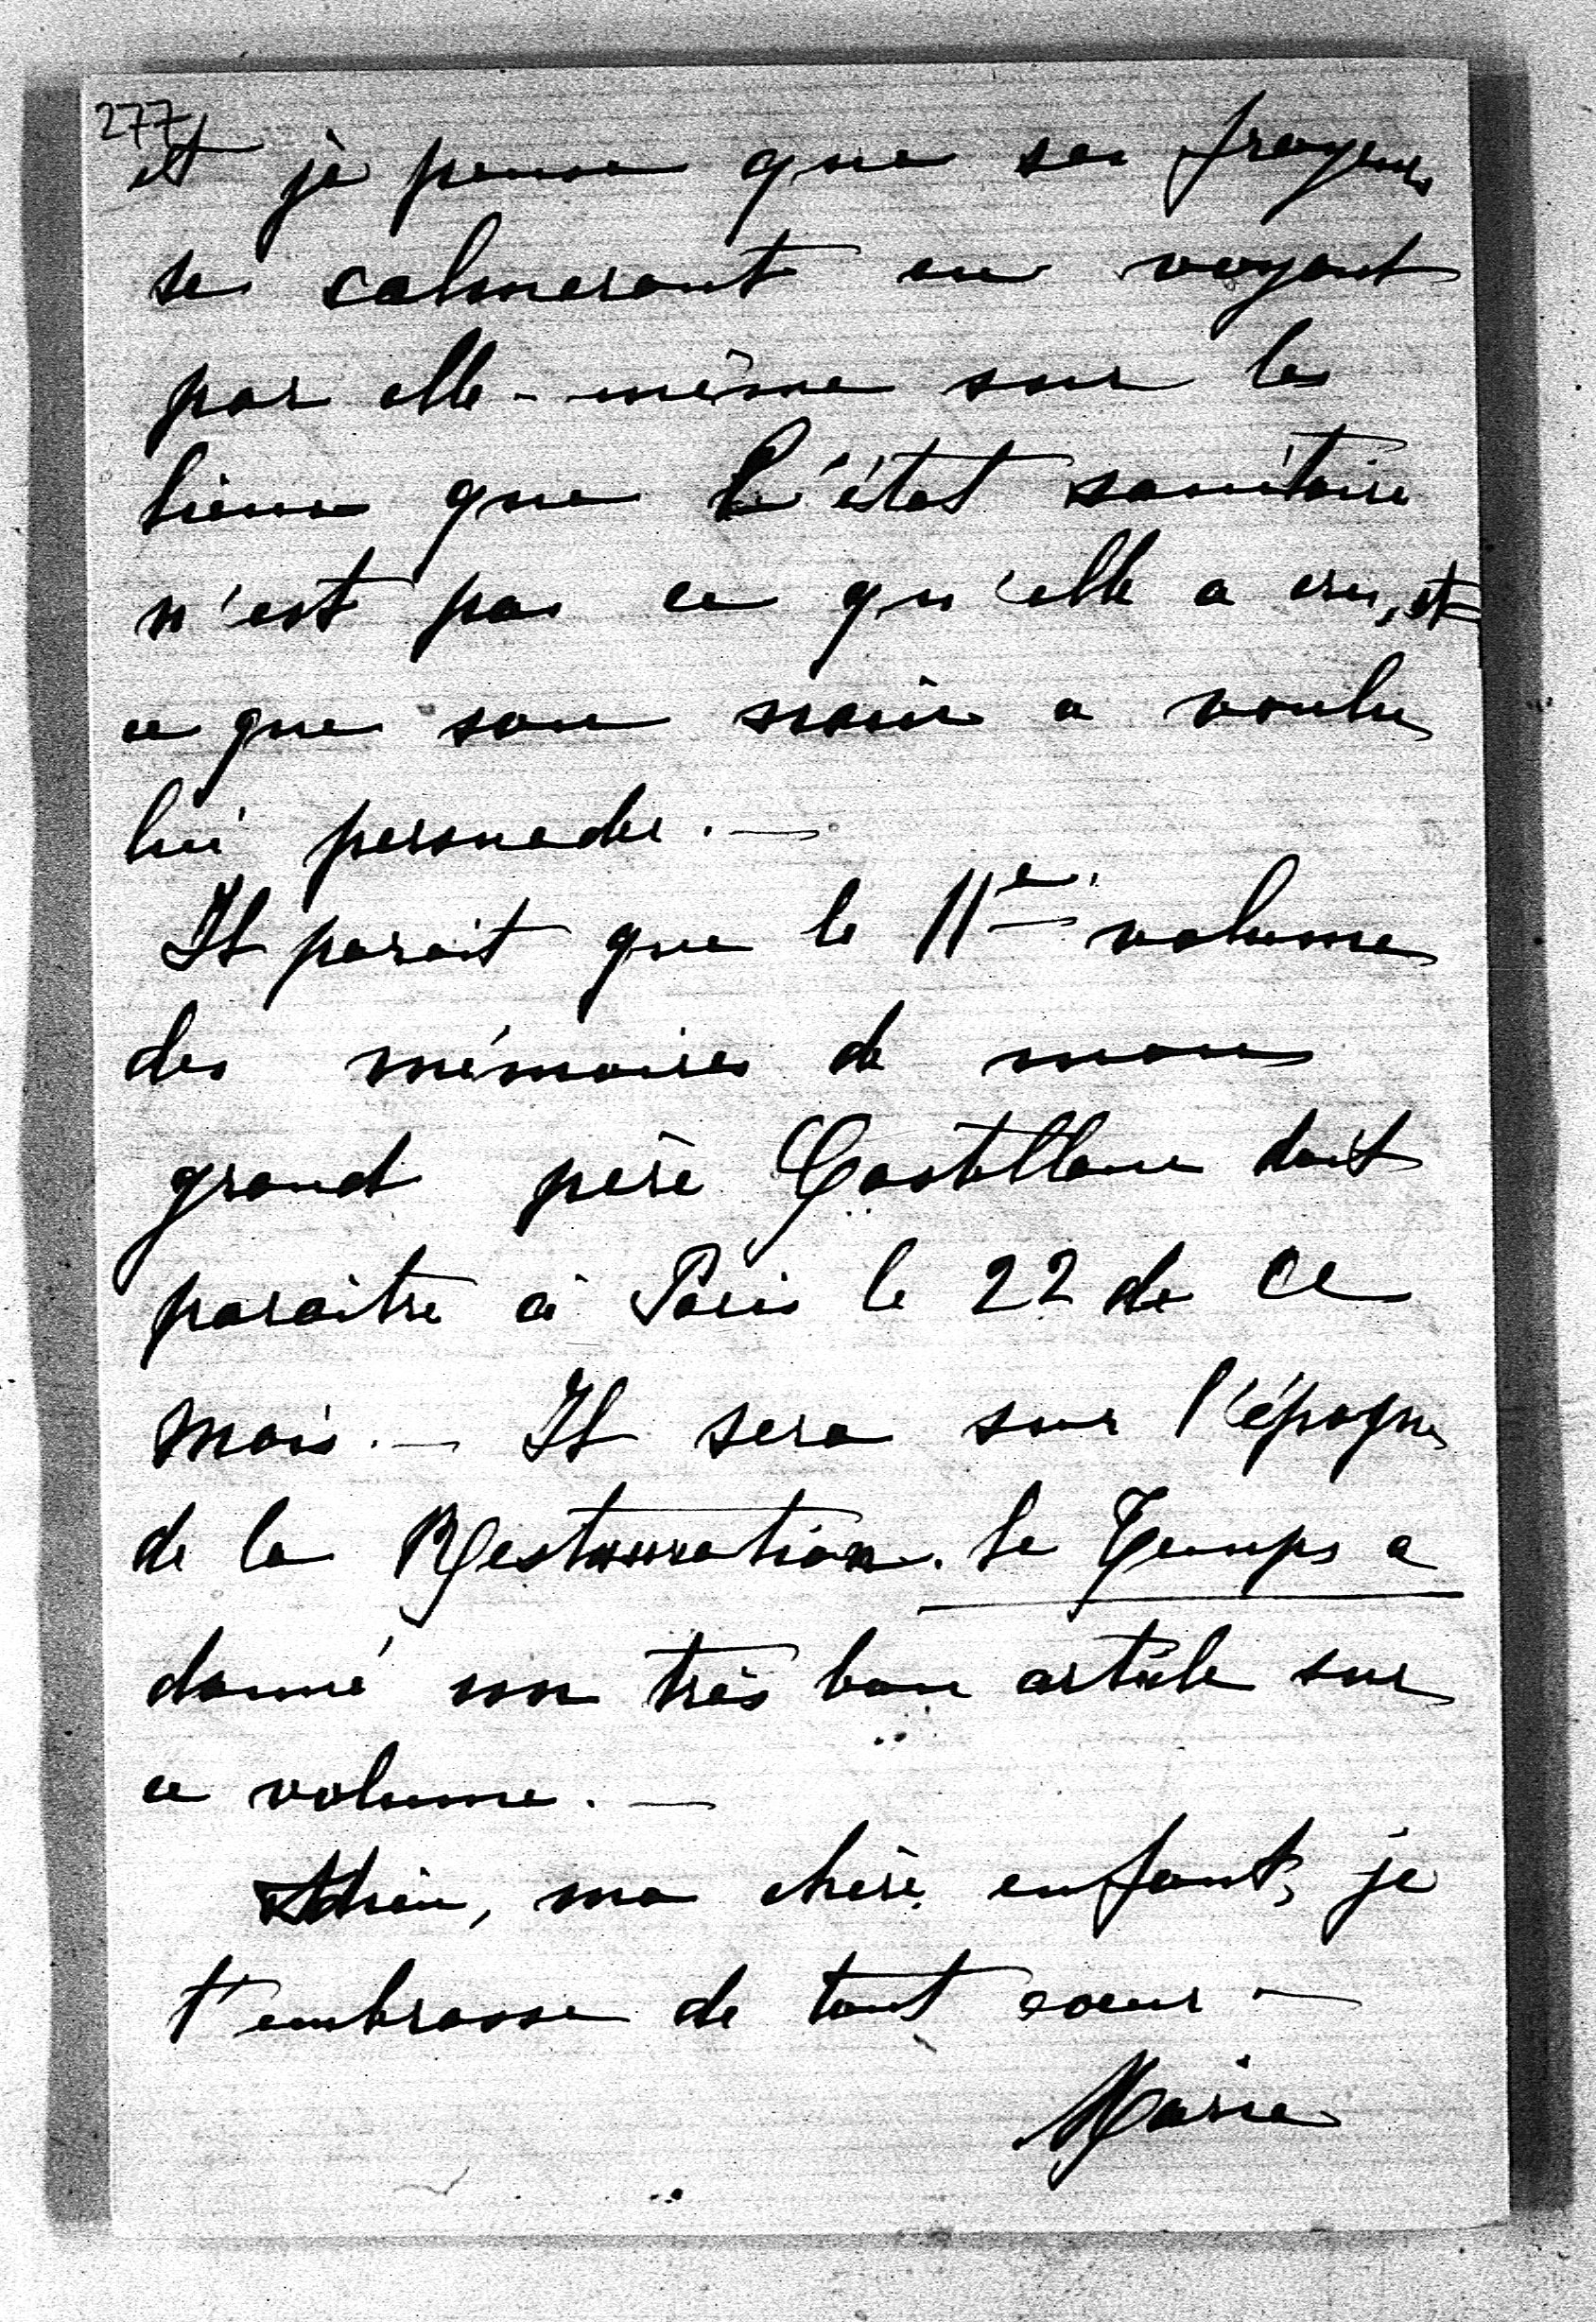 277
et je pense que ses frayeurs
se calmeront en voyant
par elle-même sur les
lieux que l'état sanitaire
n'est pas ce qu'elle a cru, et
ce que son a voulu
lui persuader. —
Il parait que le IIe volume
des mémoires de mon
grand père Castellane doit
paraitre à Paris le 22 de ce
mois. — Il sera sur l'époque
de la Restauration. Le Temps a
donné un très bon article sur
ce volume. —
Adieu, ma chère enfant, je
t'embrasse de tout coeur —
Marie